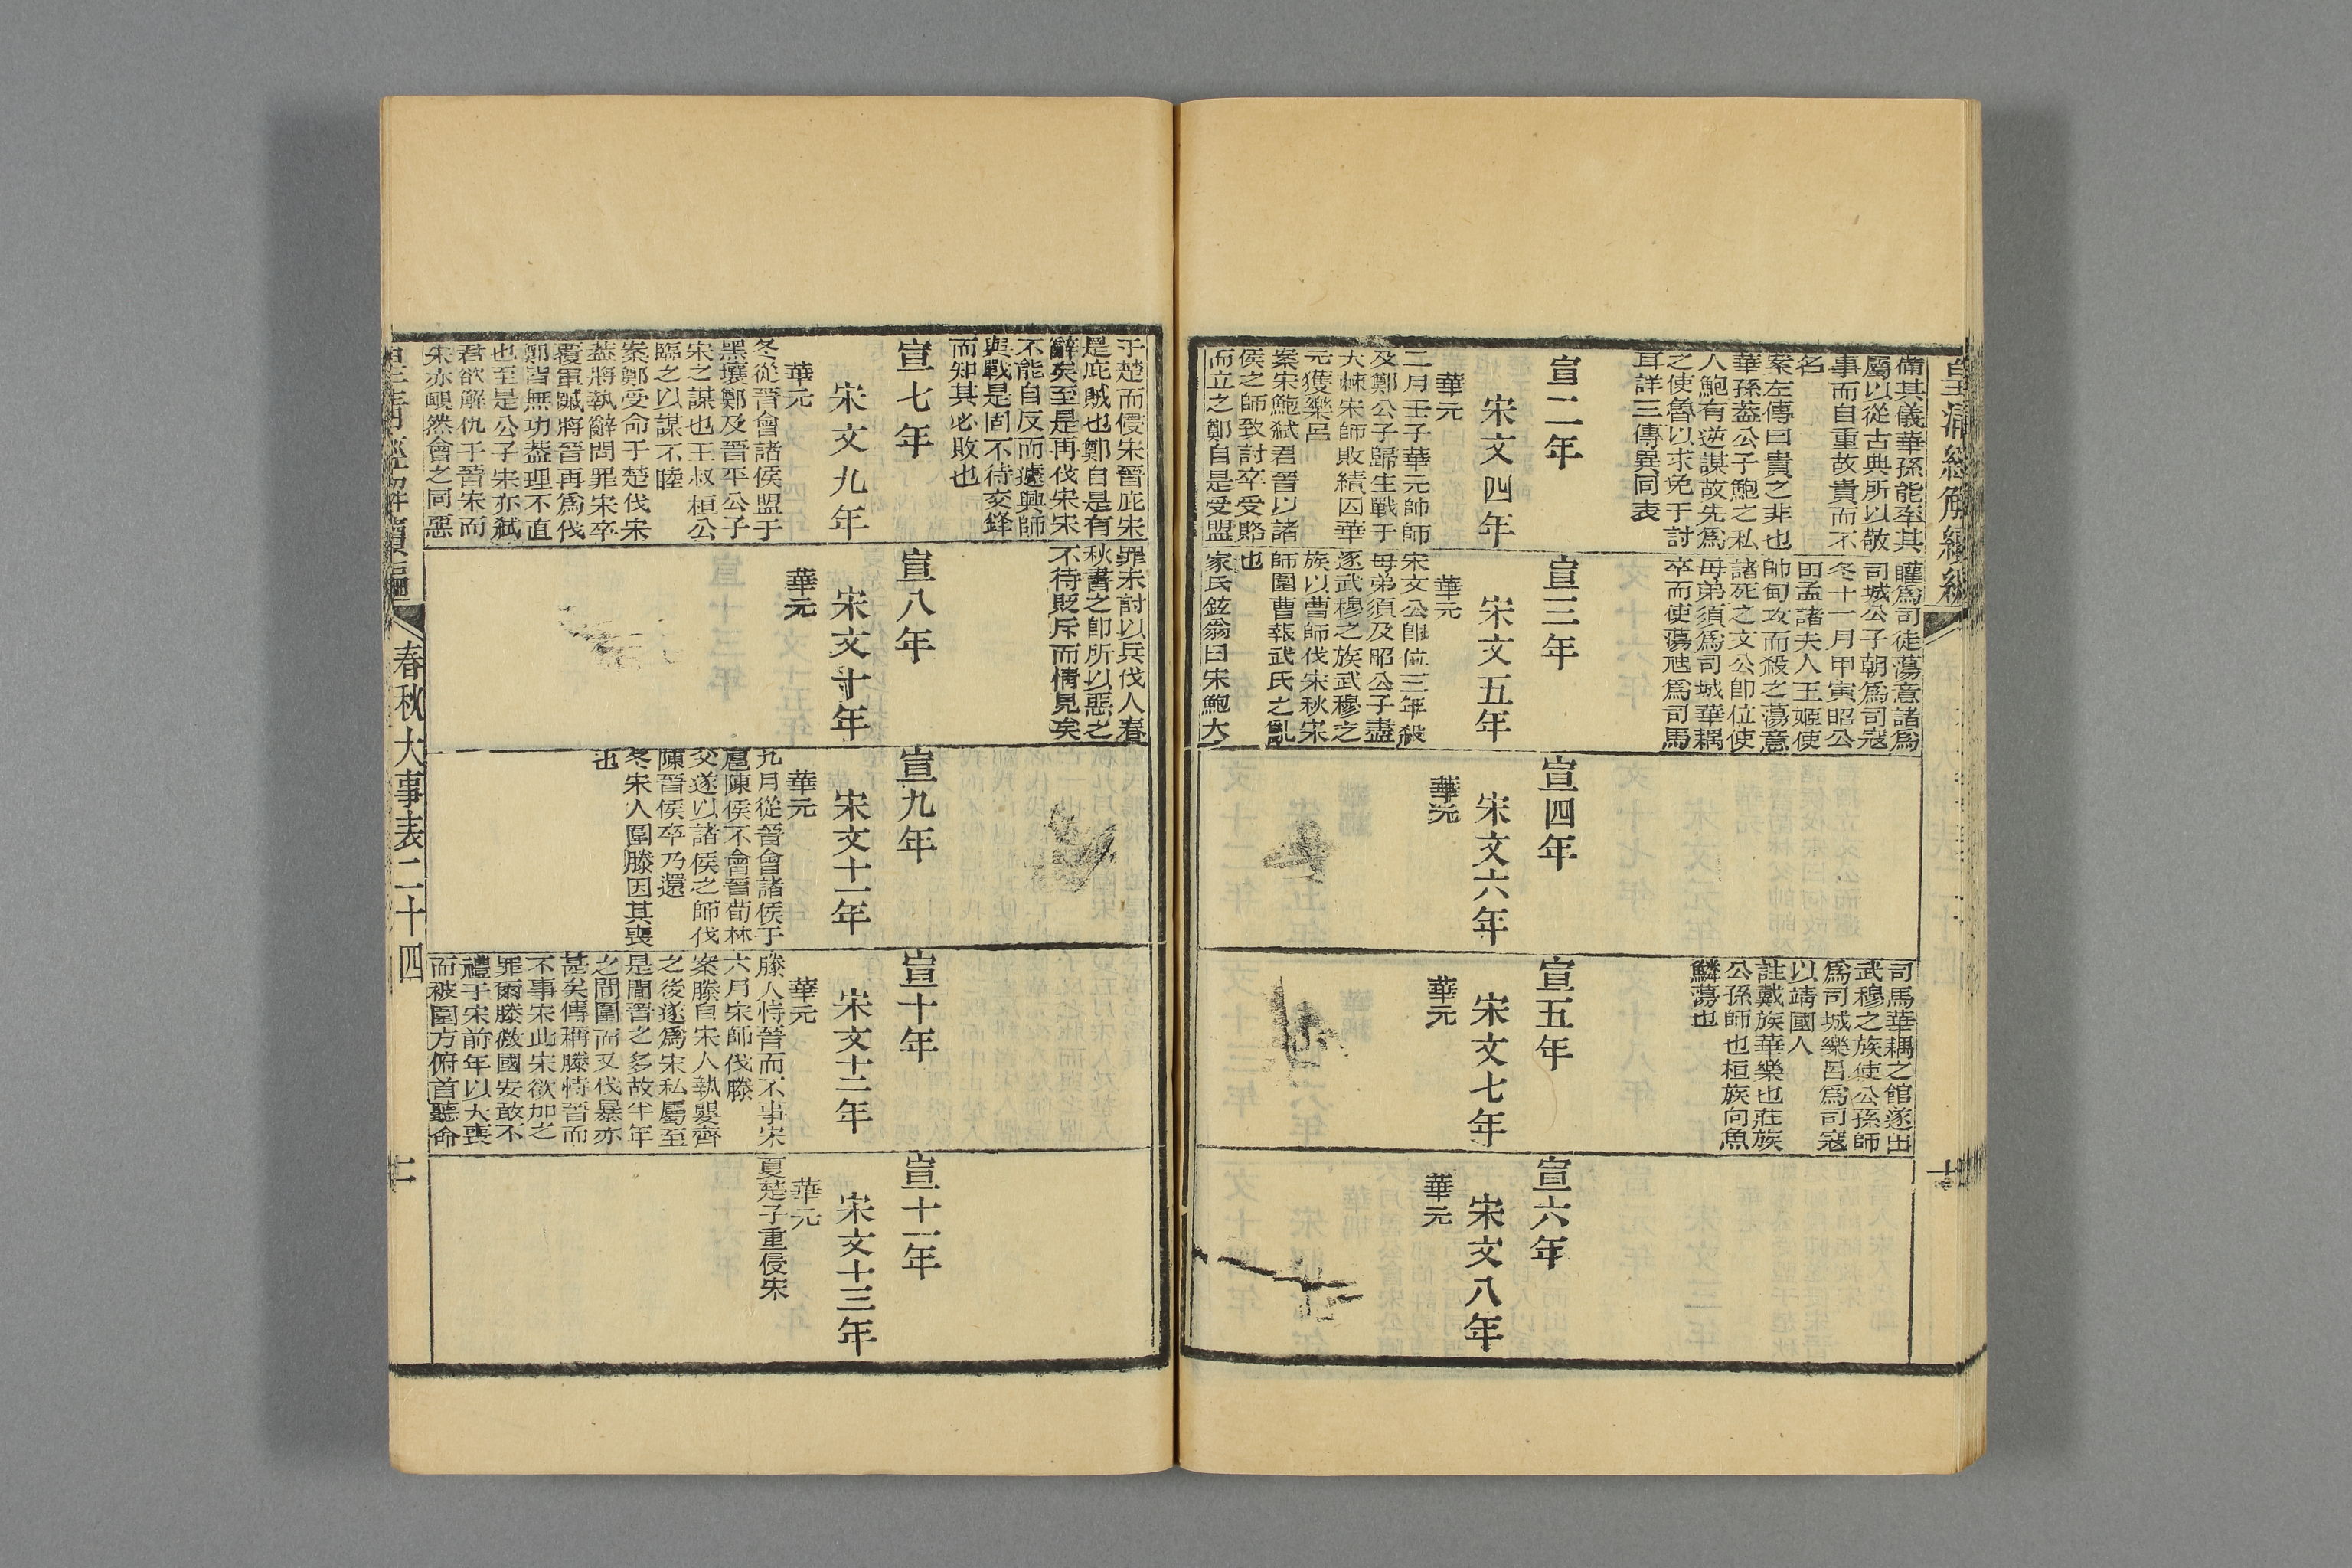 皇清經解續編
備其儀華孫能率其
屬以從古典所以敬
事而自重故貴而不
名
案左傳曰貴之非也
華孫葢公子鮑之私
人鮑有逆謀故先爲
之使魯以求免于討
耳詳三傳異同表
宣二年
宋文四年
華元
二月壬子華元帥師
及鄭公子歸生戰于
大棘宋師敗績囚華
元獲樂呂
案宋鮑弑君晉以諸
侯之師致討卒受賂
而立之鄭自是受盟
矔爲司徒蕩意諸爲
司城公子朝爲司寇
冬十一月甲寅昭公
田孟諸夫人王姬使
帥甸攻而殺之蕩意
諸死之文公卽位使
母弟須爲司城華耦
卒而使蕩虺爲司馬
宣三年
宋文五年
華元
宋文公卽位三年殺
母弟須及昭公子盡
逐武穆之族武穆之
族以曹師伐宋秋宋
師圍曹報武氏之亂
也
家氏鉉翁曰宋鮑大
宣四年
宋文六年
華元
司馬華耦之館遂出
武穆之族使公孫師
爲司城樂呂爲司寇
以靖國人
註戴族華樂也莊族
公孫師也桓族向魚
鱗蕩也
宣五年
宋文七年
華元
宣六年
宋文八年
華元
十
于楚而侵宋晉庇宋
是庇賊也鄭自是有
辭矣至是再伐宋宋
不能自反而遽興師
與戰是固不待交鋒
而知其必敗也
宣七年
宋文九年
華元
冬從晉會諸侯盟于
黑壤鄭及晉平公子
宋之謀也王叔桓公
臨之以謀不睦
案鄭受命于楚伐宋
葢將執辭問罪宋卒
覆軍馘將晉再爲伐
鄭皆無功葢理不直
也至是公子宋亦弑
君欲解仇于晉宋而
宋亦靦然會之同惡
罪未討以兵伐人春
秋書之卽所以惡之
不待貶斥而情見矣
宣八年
宋文十年
華元
宣九年
宋文十一年
華元
九月從晉會諸侯于
扈陳侯不會晉荀林
父遂以諸侯之師伐
陳晉侯卒乃還
冬宋人圍滕因其喪
也
宣十年
宋文十二年
華元
滕人恃晉而不事宋
六月宋師伐滕
案滕自宋人執嬰齊
之後遂爲宋私屬至
是閒晉之多故半年
之間圍而又伐暴亦
甚矣傳稱滕恃晉而
不事宋此宋欲加之
罪爾滕微國安敢不
禮于宋前年以大喪
而被圍方俯首聽命
宣十一年
宋文十三年
華元
夏楚子重侵宋
皇清經解續編
春秋大事表二十四